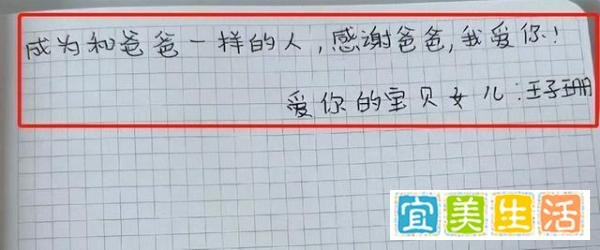 成为和爸爸一样的人,感谢爸爸,我爱你!
爱你的宝贝女儿:王子珊
宜美生活